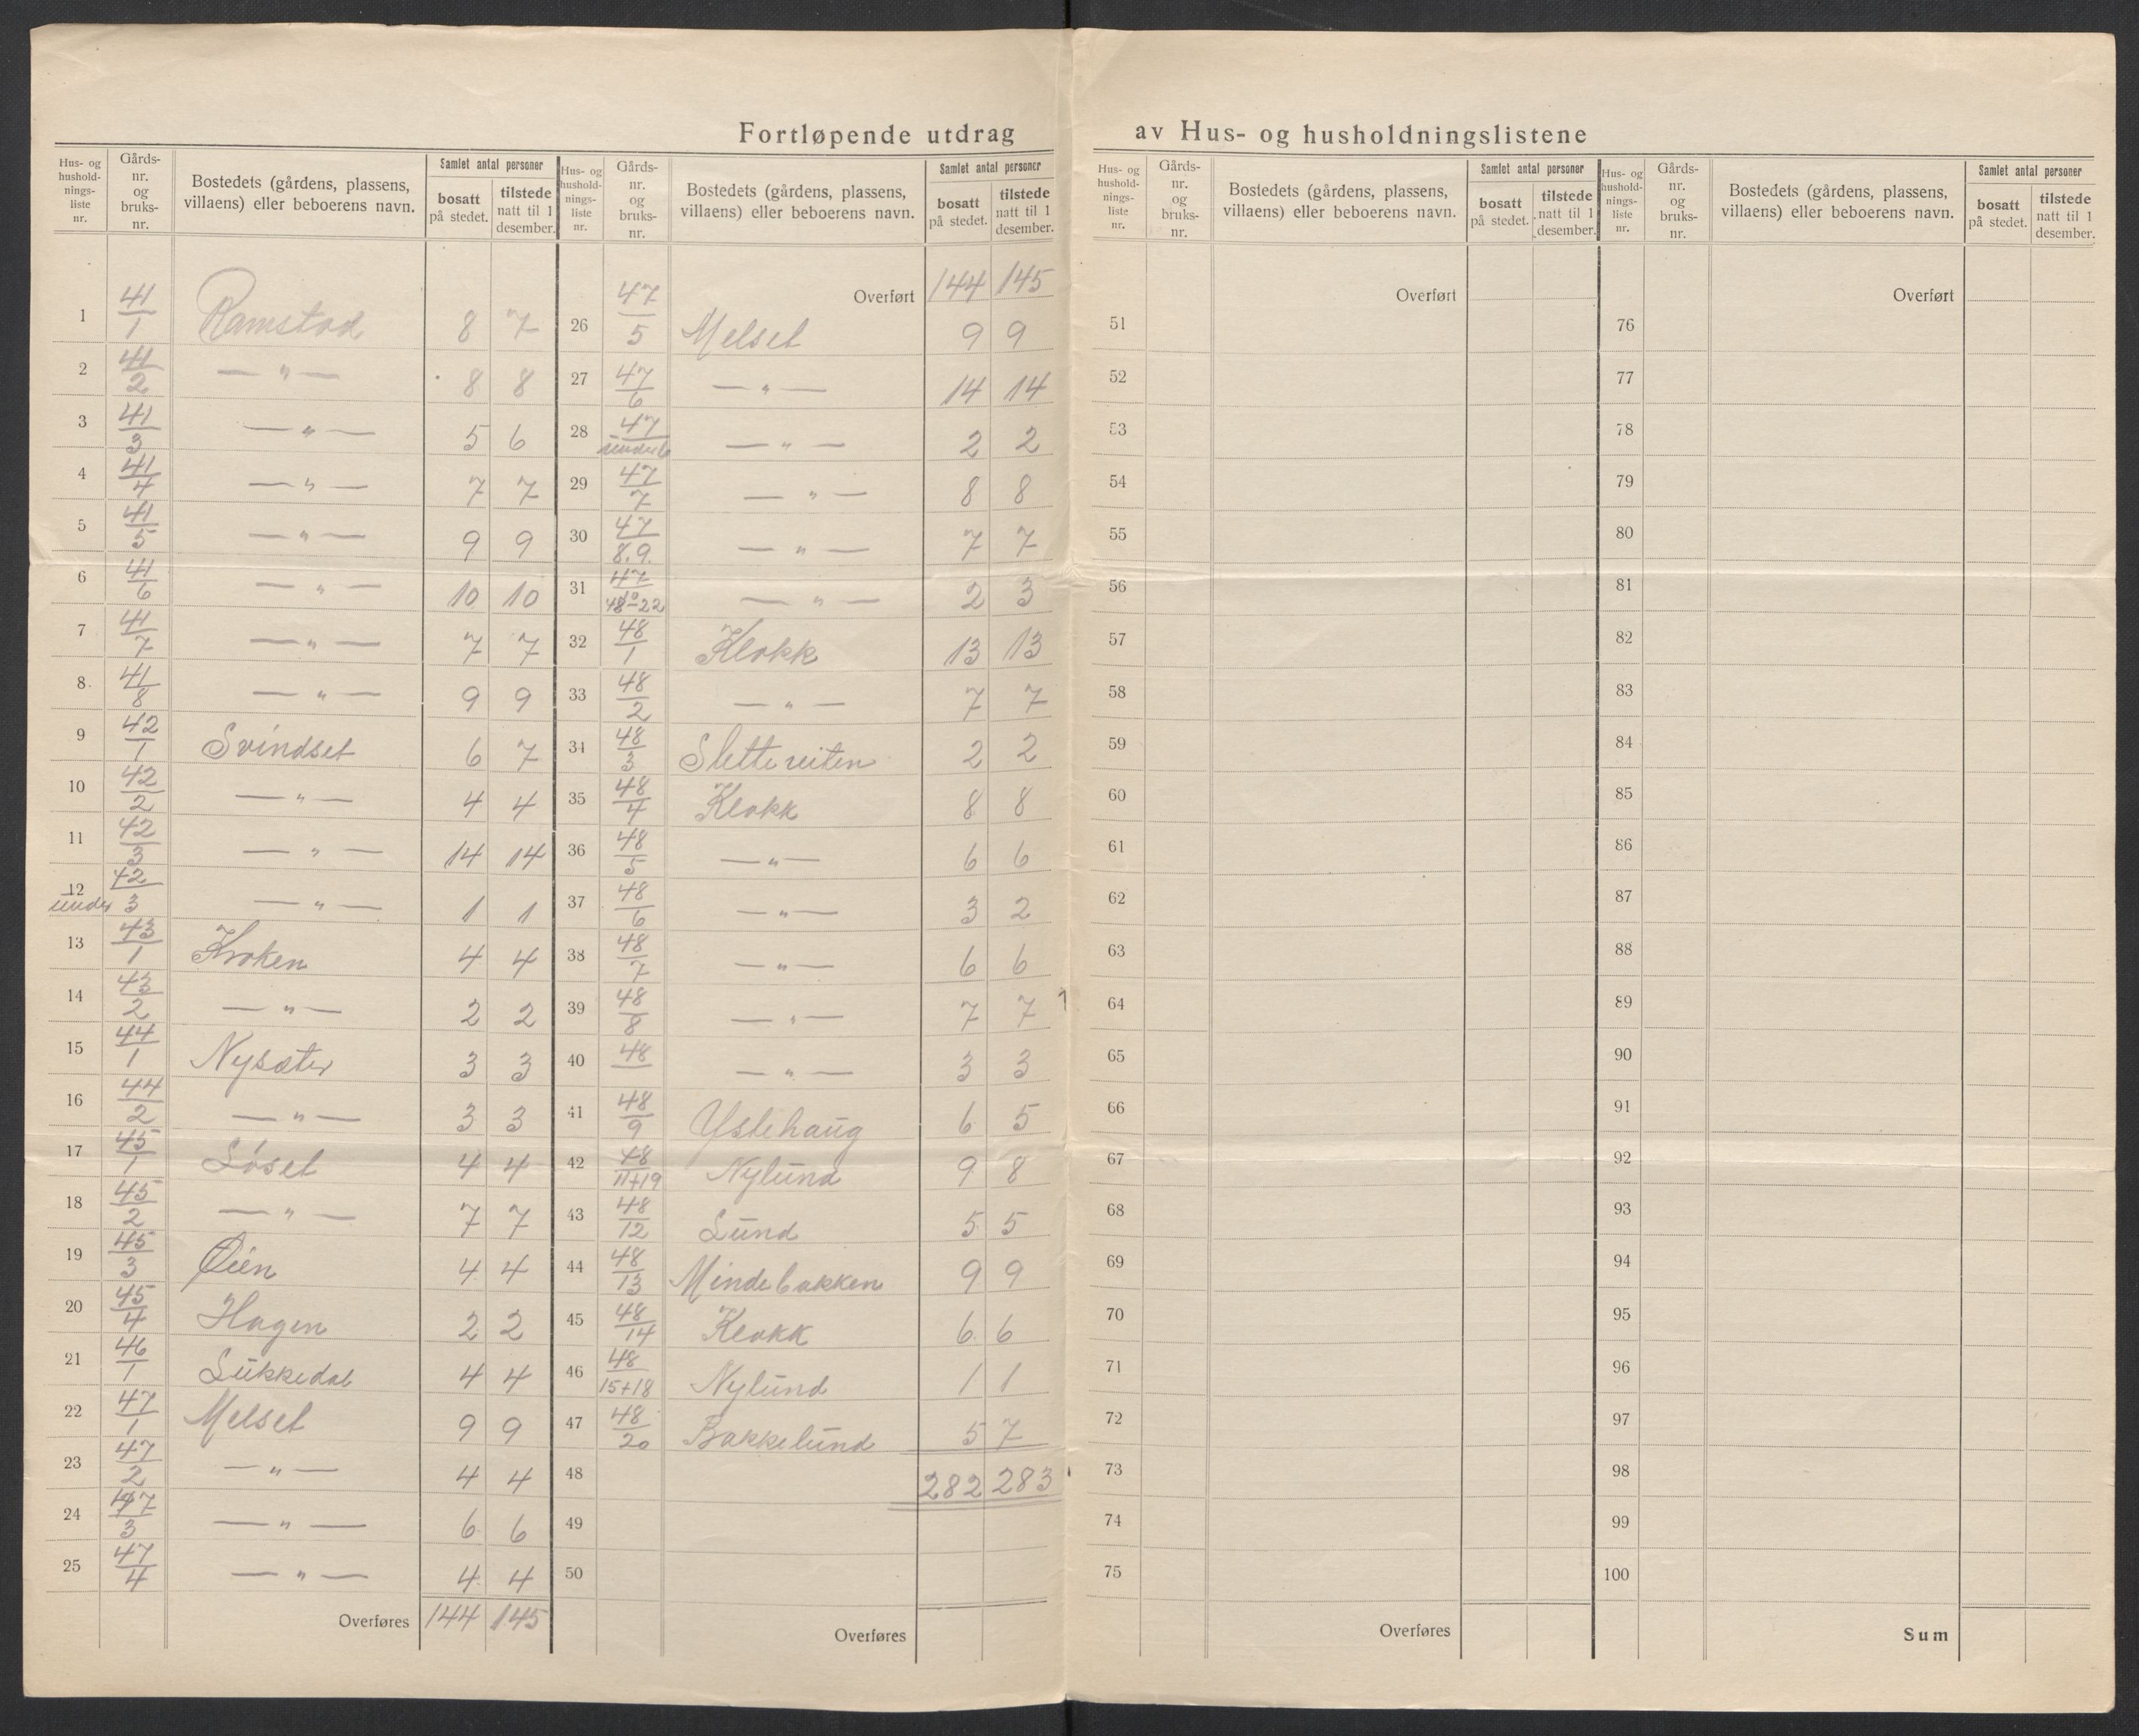 Fortløpende utdrag av Hus- og husholdningslistene
Hus- og husholdningsliste nr. | Gårds-nr. og bruks-nr. | Bostedets (gårdens, plassens, villaens) eller beboerens navn. | Samlet antal personer | bosatt på stedet. | tilstede natt til 1 desember.
1 41/1 Ramstad 8 7
2 41/2 —"— 8 8
3 41/3 —"— 5 6
4 41/4 —"— 7 7
5 41/5 —"— 9 9
6 41/6 —"— 10 10
7 41/7 —"— 7 7
8 41/8 —"— 9 9
9 42/1 Svindset 6 7
10 42/2 —"— 4 4
11 42/3 —"— 14 14
12 under 42/3 —"— 1 1
13 43/1 Kroken 4 4
14 43/2 —"— 2 2
15 44/1 Nysæter 3 3
16 44/2 —"— 3 3
17 45/1 Løset 4 4
18 45/2 —"— 7 7
19 45/3 Øien 4 4
20 45/4 Hagen 2 2
21 46/1 Lükkedal 4 4
22 47/1 Melset 9 9
23 47/2 —"— 4 4
24 47/3 —"— 6 6
25 47/4 —"— 4 4
Overføres 144 145
Hus- og husholdningsliste nr. | Gårds-nr. og bruks-nr. | Bostedets (gårdens, plassens, villaens) eller beboerens navn. | Samlet antal personer | bosatt på stedet. | tilstede natt til 1 desember.
Overført 144 145
26 47/5 Melset 9 9
27 47/6 —"— 14 14
28 47/under 6 —"— 2 2
29 47/7 —"— 8 8
30 47/8.9. —"— 7 7
31 47/10 48-22 —"— 2 3
32 48/1 Klokk 13 13
33 48/2 —"— 7 7
34 48/3 Slettereiten 2 2
35 48/4 Klokk 8 8
36 48/5 —"— 6 6
37 48/6 —"— 3 2
38 48/7 —"— 6 6
39 48/8 —"— 7 7
40 48 —"— 3 3
41 48/9 Ystehaug 6 5
42 48/11+19 Nylünd 9 8
43 48/12 Lünd 5 5
44 48/13 Mindebakken 9 9
45 48/14 Klokk 6 6
46 48/15+18 Nylünd 1 1
47 48/20 Bakkelünd 5 7
48 282 283
49
50
Overføres
Hus- og husholdningsliste nr. | Gårds-nr. og bruks-nr. | Bostedets (gårdens, plassens, villaens) eller beboerens navn. | Samlet antal personer | bosatt på stedet. | tilstede natt til 1 desember.
Overført
51
52
53
54
55
56
57
58
59
60
61
62
63
64
65
66
67
68
69
70
71
72
73
74
75
Overføres
Hus- og husholdningsliste nr. | Gårds-nr. og bruks-nr. | Bostedets (gårdens, plassens, villaens) eller beboerens navn. | Samlet antal personer | bosatt på stedet. | tilstede natt til 1 desember.
Overført
76
77
78
79
80
81
82
83
84
85
86
87
88
89
90
91
92
93
94
95
96
97
98
99
100
Sum